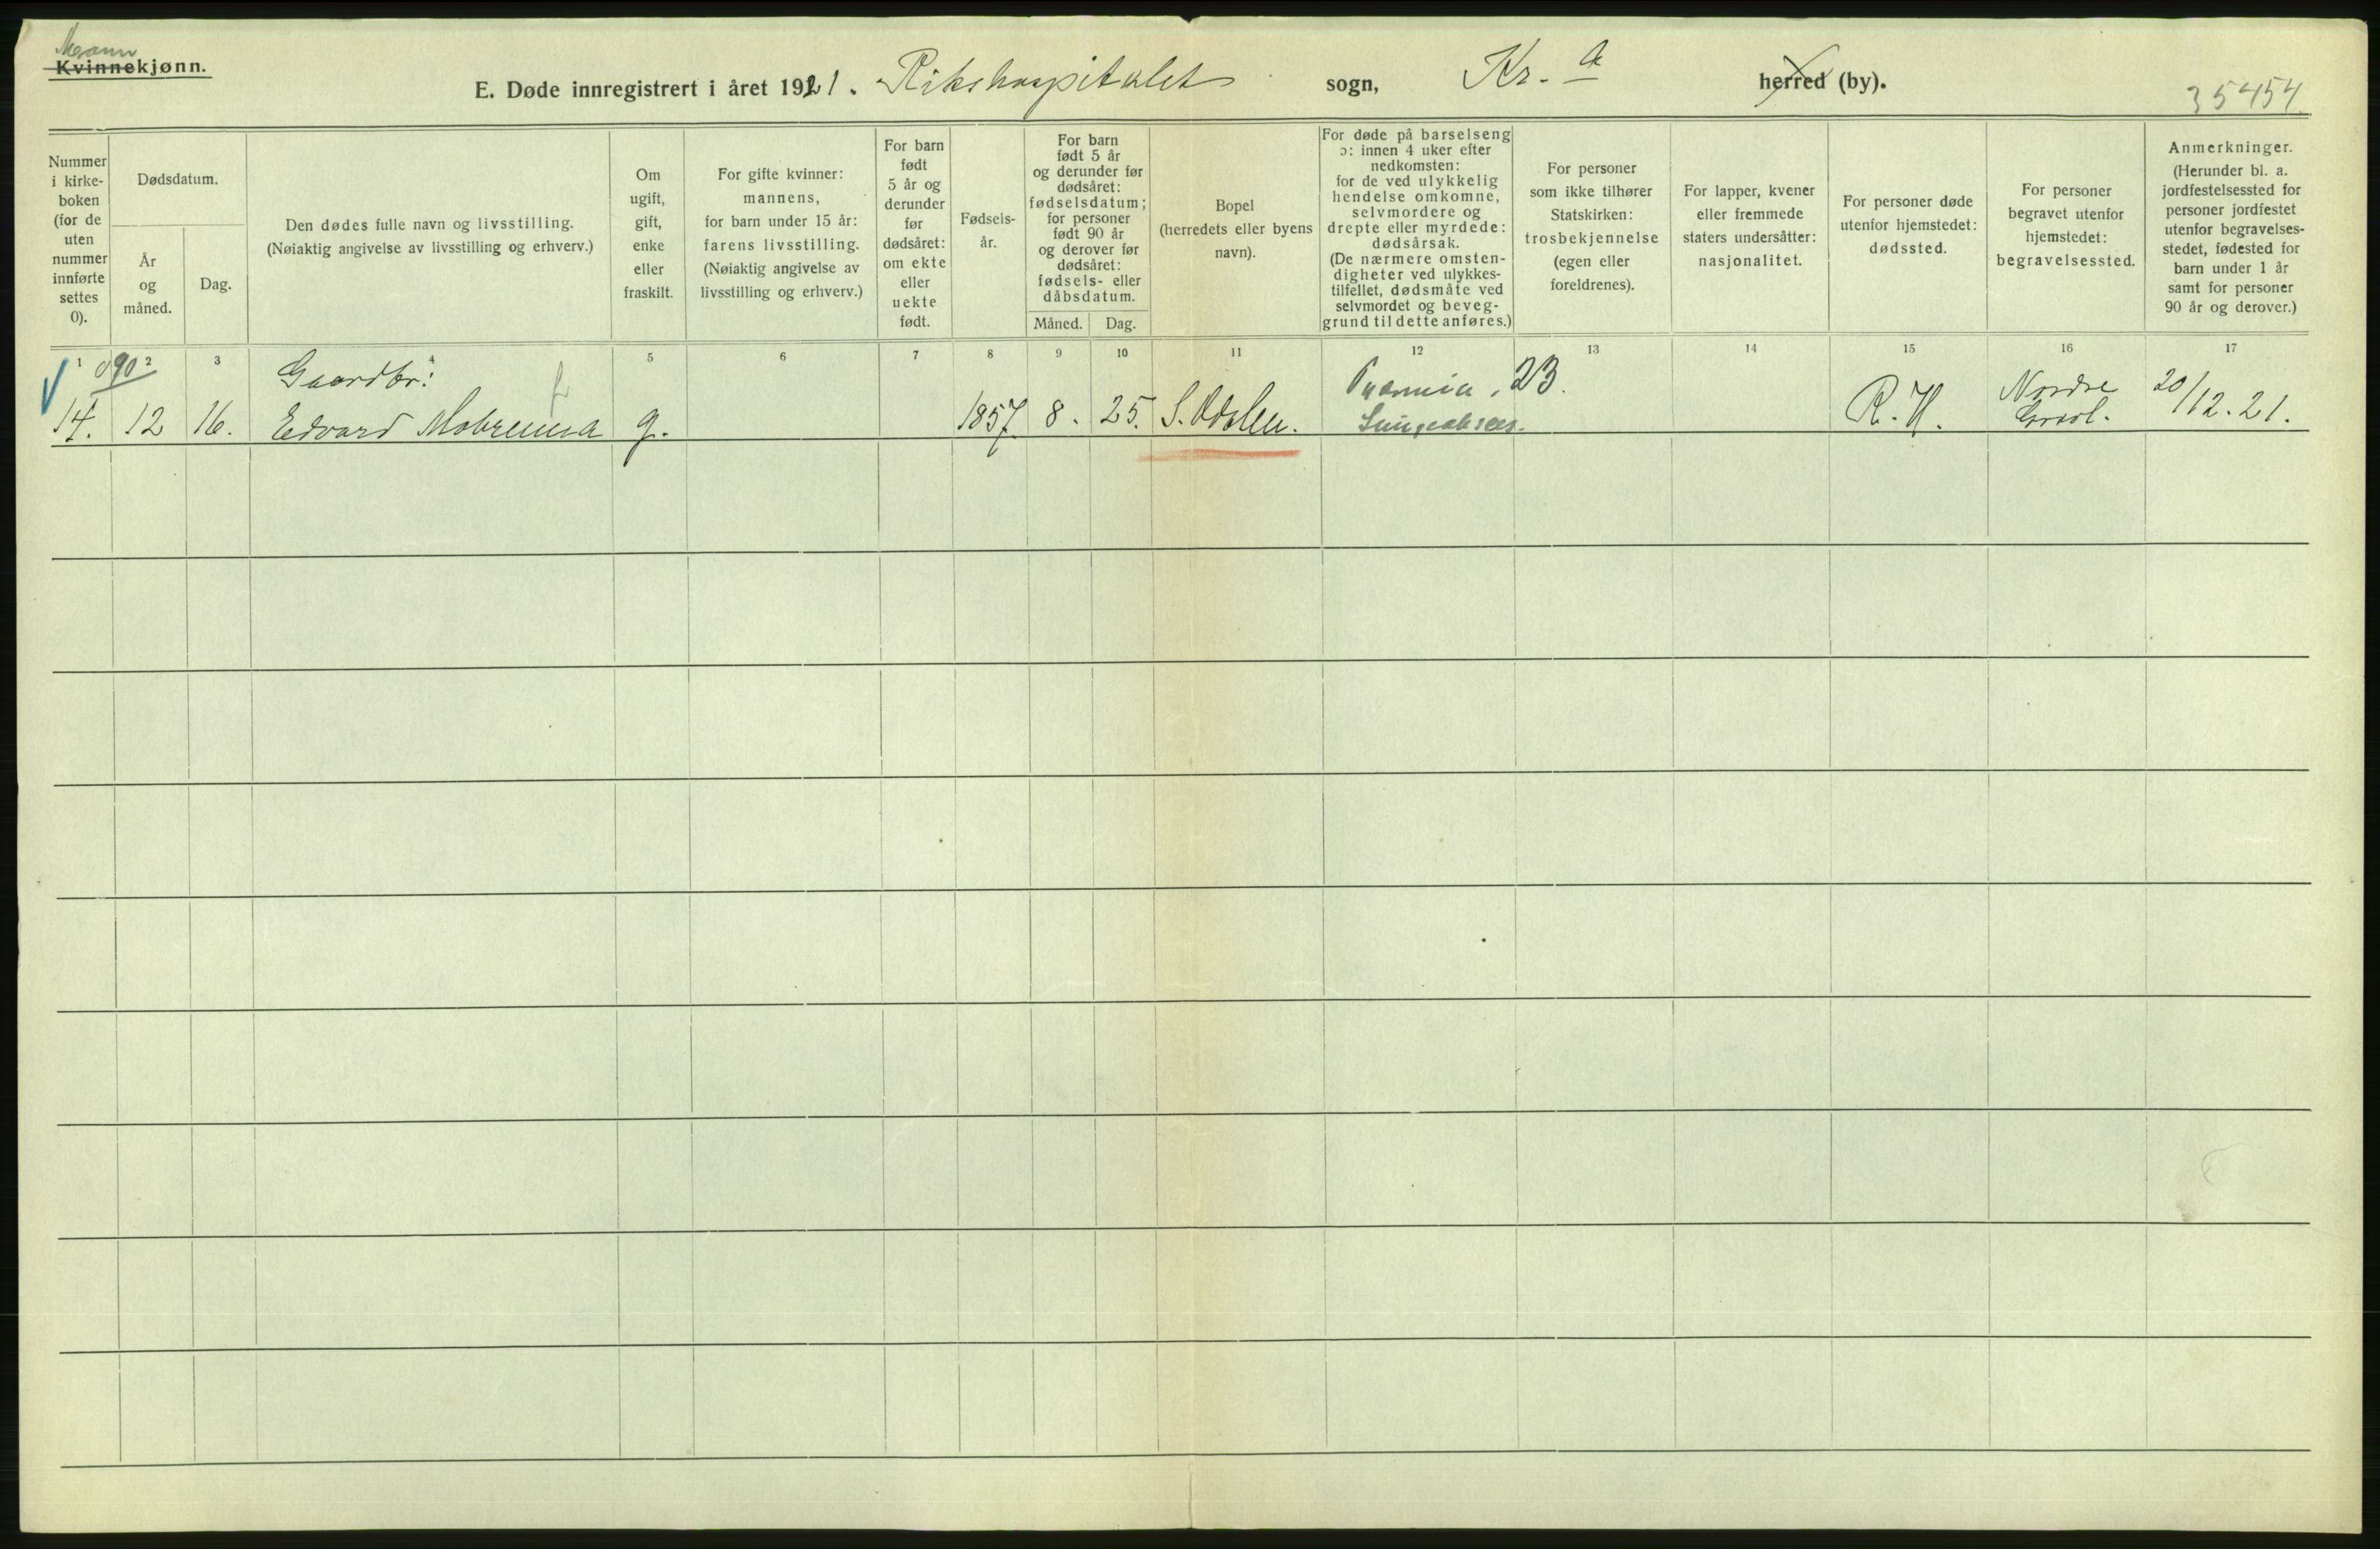 Mann
Kvinnekjønn.
E. Døde innregistrert i året 1921. Rikshospitalet sogn, Kr.a herred (by).
35454
Nummer
i kirke-
boken
(for de
uten
nummer
innførte
settes
0).
Dødsdatum.
År
og
måned.
Dag.
Den dødes fulle navn og livsstilling.
(Nøiaktig angivelse av livsstilling og erhverv.)
Om
ugift,
gift,
enke
eller
fraskilt.
For gifte kvinner:
mannens,
for barn under 15 år:
farens livsstilling.
(Nøiaktig angivelse av
livsstilling og erhverv.)
For barn
født
5 år og
derunder
før
dødsåret:
om ekte
eller
uekte
født.
Fødsels-
år.
For barn
født 5 år
og derunder før
dødsåret:
fødselsdatum;
for personer
født 90 år
og derover før
dødsåret:
fødsels- eller
dåbsdatum.
Måned. Dag.
Bopel
(herredets eller byens
navn).
For døde på barselseng
ɔ: innen 4 uker efter
nedkomsten:
for de ved ulykkelig
hendelse omkomne,
selvmordere og
drepte eller myrdede:
dødsårsak.
(De nærmere omsten-
digheter ved ulykkes-
tilfellet, dødsmåte ved
selvmordet og beveg-
grund til dette anføres.)
For personer
som ikke tilhører
Statskirken:
trosbekjennelse
(egen eller
foreldrenes).
For lapper, kvener
eller fremmede
staters undersåtter:
nasjonalitet.
For personer døde
utenfor hjemstedet:
dødssted.
For personer
begravet utenfor
hjemstedet:
begravelsessted.
Anmerkninger.
(Herunder bl. a.
jordfestelsessted for
personer jordfestet
utenfor begravelses-
stedet, fødested for
barn under 1 år
samt for personer
90 år og derover.)
1 2 3 4 5 6 7 8 9 10 11 12 13 14 15 16 17
90
Gaardbr: 23. Nordre
14. 12 16. Edvard g. 1857. 8. 25. S. Odalen. R.H. Gravl. 20/12.21.